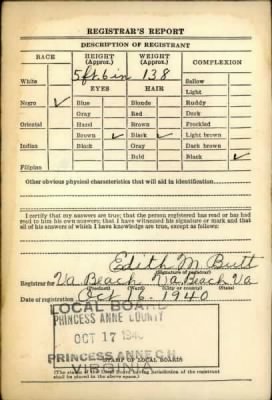 REGISTRAR'S REPORT
DESCRIPTION OF REGISTRANT
RACE HEIGHT (Approx.) WEIGHT (Approx.) COMPLEXION
White 5 ft. 6 in 138 Sallow
EYES HAIR Light
Negro ✓ Blue Blonde Ruddy
Gray Red Dark
Oriental Hazel Brown Freckled
Brown ✓ Black ✓ Light brown
Indian Black Gray Dark brown
Bald Black ✓
Filipino
Other obvious physical characteristics that will aid in identification
I certify that my answers are true; that the person registered has read or has had
read to him his own answers; that I have witnessed his signature or mark and that
all of his answers of which I have knowledge are true, except as follows:
Edith M. Butt
(Signature of registrar)
Registrar for Va. Beach Va. Beach Va
(Precinct) (City or county) (State)
Date of registration Oct 16, 1940
LOCAL BOARD
PRINCESS ANNE COUNTY
OCT 17 1940
PRINCESS ANNE C.H.
VIRGINIA
(STAMP OF LOCAL BOARD)
(The stamp of the Local Board having jurisdiction of the registrant
shall be placed in the above space.)